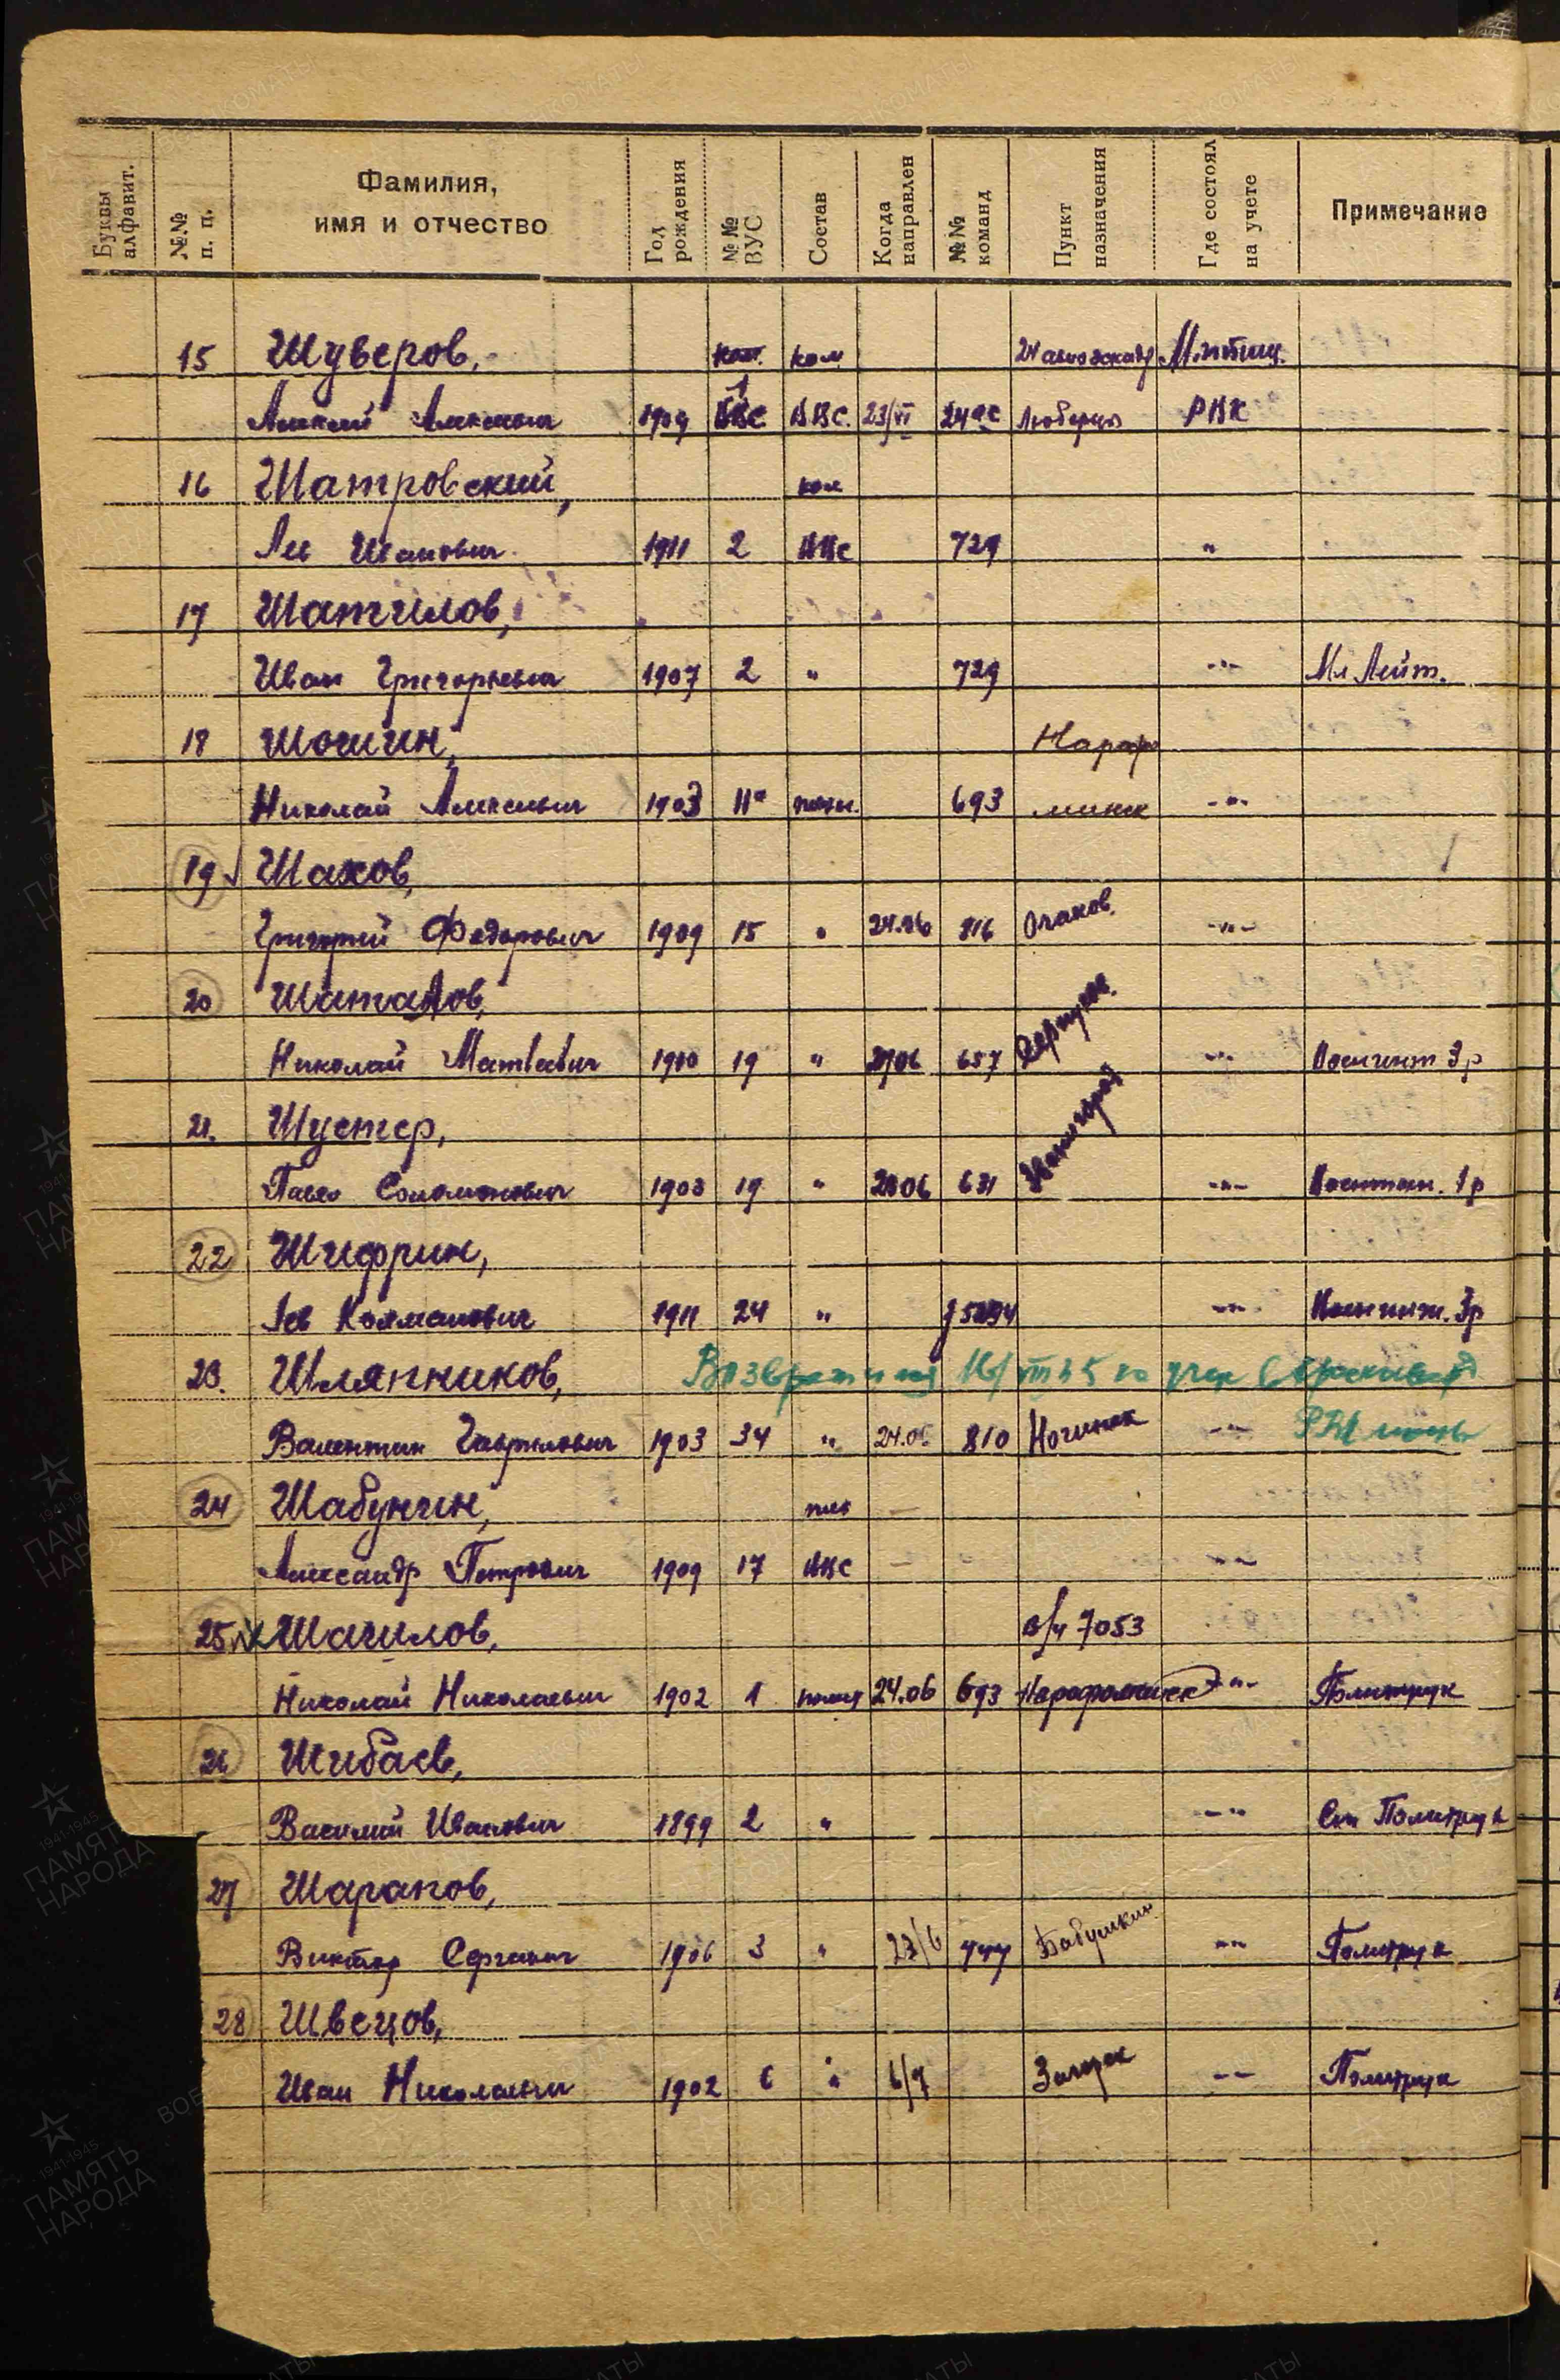 Буквы алфавит. №№ п. п. Фамилия, имя и отчество Год рождения №№ ВУС Состав Когда направлен №№ команд Пункт назначения Где состоял на учете Примечание
15 Шуверов, ком. 24 Мытищ.
Алексей Алексеевич 1904 1 ВВС ВВС. 23/VI 24 ас Люберцы РВК
16 Шатровский, ком
Лев Иванович 1911 2 ВВС 729 "
17 Шатилов,
Иван Григорьевич 1907 2 " 729 -"- Мл Лейт.
18 Шошин, Нарофо
Николай Алексеевич 1903 693 минск -"-
19 Шахов,
Григорий Федорович 1909 15 " 24.06 816 Очаков. -"-
20 Шаталов,
Николай Матвеевич 1900 19 " 657 Серпухов. -"- Воентехн 3р
21. Шустер,
Павел Соломонович 1903 19 " 2806 631 Звенигород -"- 1р
22 Шифрин,
Лев Калманович 1911 24 " -"- 3р
23. Шляпников, Возвратился на учет в
Валентин Гаврилович 1903 34 " 24.06 810 Ногинск -"- РВК
24 Шабунин, пол —
Александр Петрович 1909 17 ВВС — -"-
25 Шачилов, в/ч 7053
Николай Николаевич 1902 1 24.06 693 Нарофоминск -"- Политрук
26 Шибаев,
Василий Иванович 1899 2 " -"- Ст Политрук
27 Шарапов,
Виктор Сергеевич 1906 3 " 23/6 777 Бабушкин. -"- Политрук
28 Швецов,
Иван Николаевич 1902 6 " 6/7 Загорск -"- Политрук